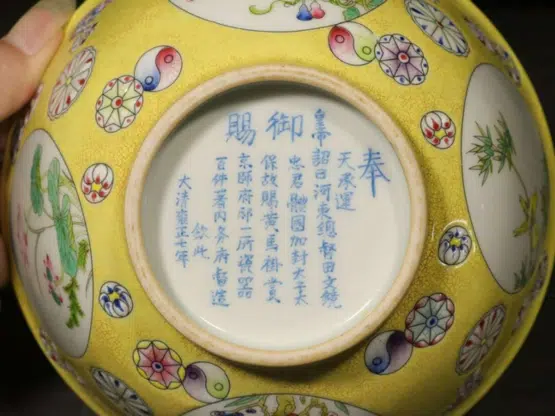 御賜
奉
天承運
皇帝詔曰河東總督田文鏡
忠君體國加封太子太
保故賜黃馬褂賞
京師府邸一所瓷器
百件著內务府督造
欽此
大清雍正七年